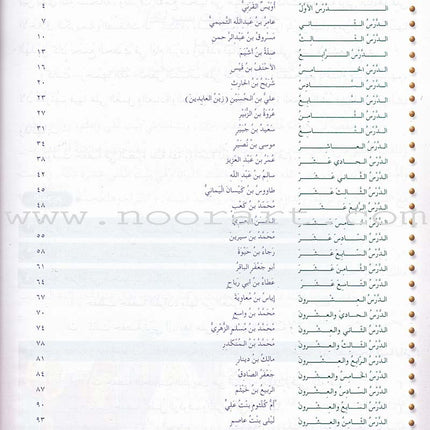 الدَّرْسُ الأوَّلُ أُوَيْسٌ القَرَنِيُّ ٤
الدَّرْسُ الثَّانِي عامِرُ بنُ عَبدِاللهِ التَّمِيمِيُّ ٧
الدَّرْسُ الثَّالِثُ مَسْرُوقُ بنُ عَبْدِالرَّحمنِ ١٠
الدَّرْسُ الرَّابِعُ صِلَةُ بنُ أَشْيَمَ ١٣
الدَّرْسُ الخَامِسُ الأَحْنَفُ بنُ قَيْسٍ ١٦
الدَّرْسُ السَّادِسُ شُرَيْحُ بنُ الحَارِثِ ٢٠
الدَّرْسُ السَّابِعُ عَلِيُّ بنُ الحُسَيْنِ (زَيْنُ العَابِدِينَ) ٢٣
الدَّرْسُ الثَّامِنُ عُرْوَةُ بنُ الزُّبَيْرِ ٢٧
الدَّرْسُ التَّاسِعُ سَعِيدُ بنُ جُبَيْرٍ ٣١
الدَّرْسُ العَاشِرُ موسى بنُ نُصَيْرٍ ٣٤
الدَّرْسُ الحَادِي عَشَرَ عُمَرُ بنُ عَبْدِ العَزِيزِ ٣٨
الدَّرْسُ الثَّانِي عَشَرَ سَالِمُ بنُ عَبْدِ اللهِ ٤٢
الدَّرْسُ الثَّالِثَ عَشَرَ طَاووسُ بنُ كَيْسَانَ اليَمَانِيُّ ٤٥
الدَّرْسُ الرَّابِعَ عَشَرَ مُحَمَّدُ بنُ كَعْبٍ ٤٨
www.noorart.com
الدَّرْسُ الخَامِسَ عَشَرَ
الدَّرْسُ السَّادِسَ عَشَرَ مُحَمَّدُ بنُ سِيرِينَ ٥٥
الدَّرْسُ السَّابِعَ عَشَرَ رَجَاءُ بنُ حَيْوَةَ ٥٨
الدَّرْسُ الثَّامِنَ عَشَرَ أبو جَعْفَرٍ الباقِرُ ٦١
الدَّرْسُ التَّاسِعَ عَشَرَ عَطَاءُ بنُ أبي رَبَاحٍ ٦٤
الدَّرْسُ العِشْرُونَ إيَاسُ بنُ مُعَاوِيَةَ ٦٧
الدَّرْسُ الحَادِي والعِشْرُونَ مُحَمَّدُ بنُ وَاسِعٍ ٧٠
الدَّرْسُ الثَّانِي والعِشْرُونَ مُحَمَّدُ بنُ مُسْلِمٍ الزُّهْرِيُّ ٧٤
الدَّرْسُ الثَّالِثُ والعِشْرُونَ مُحَمَّدُ بنُ المُنْكَدِرِ ٧٨
الدَّرْسُ الرَّابِعُ والعِشْرُونَ مَالِكُ بنُ دِينَارٍ ٨١
الدَّرْسُ الخَامِسُ والعِشْرُونَ جَعْفَرٌ الصَّادِقُ ٨٤
الدَّرْسُ السَّادِسُ والعِشْرُونَ الرَّبِيعُ بنُ خَيْثَمٍ ٨٧
الدَّرْسُ السَّابِعُ والعِشْرُونَ أُمُّ كُلْثُومٍ بِنْتُ عَلِيٍّ ٩٠
الدَّرْسُ الثَّامِنُ والعِشْرُونَ لَيْلَى بِنْتُ عَاصِمٍ ٩٣